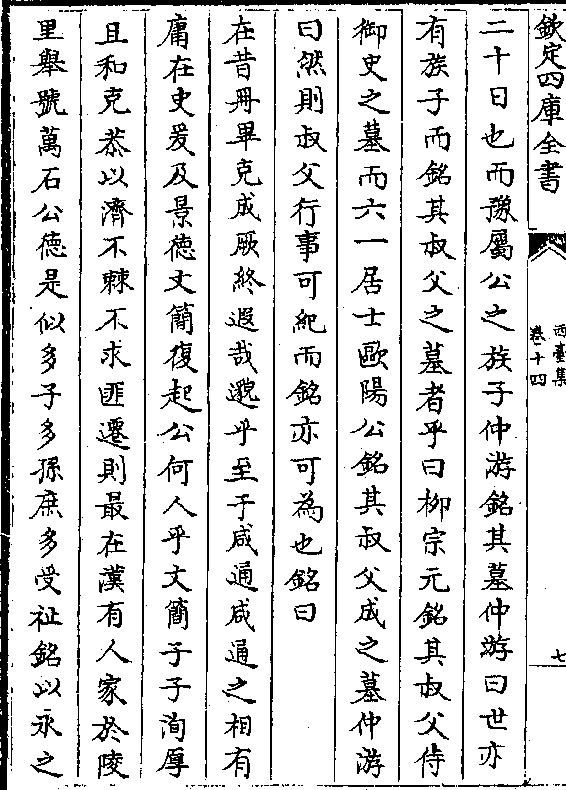 欽定四庫全書
西臺集
卷十四
七
二十日也而豫屬公之族子仲游銘其墓仲游曰世亦
有族子而銘其叔父之墓者乎曰柳宗元銘其叔父侍
御史之墓而六一居士歐陽公銘其叔父成之墓仲游
曰然則叔父行事可紀而銘亦可為也銘曰
在昔冊畢克成厥終遐哉邈乎至于咸通咸通之相有
庸在史爰及景徳文簡復起公何人乎文簡子子洵厚
且和克恭以濟不棘不求匪遷則最在漢有人家於陵
里舉號萬石公徳是似多子多孫庶多受祉銘以永之